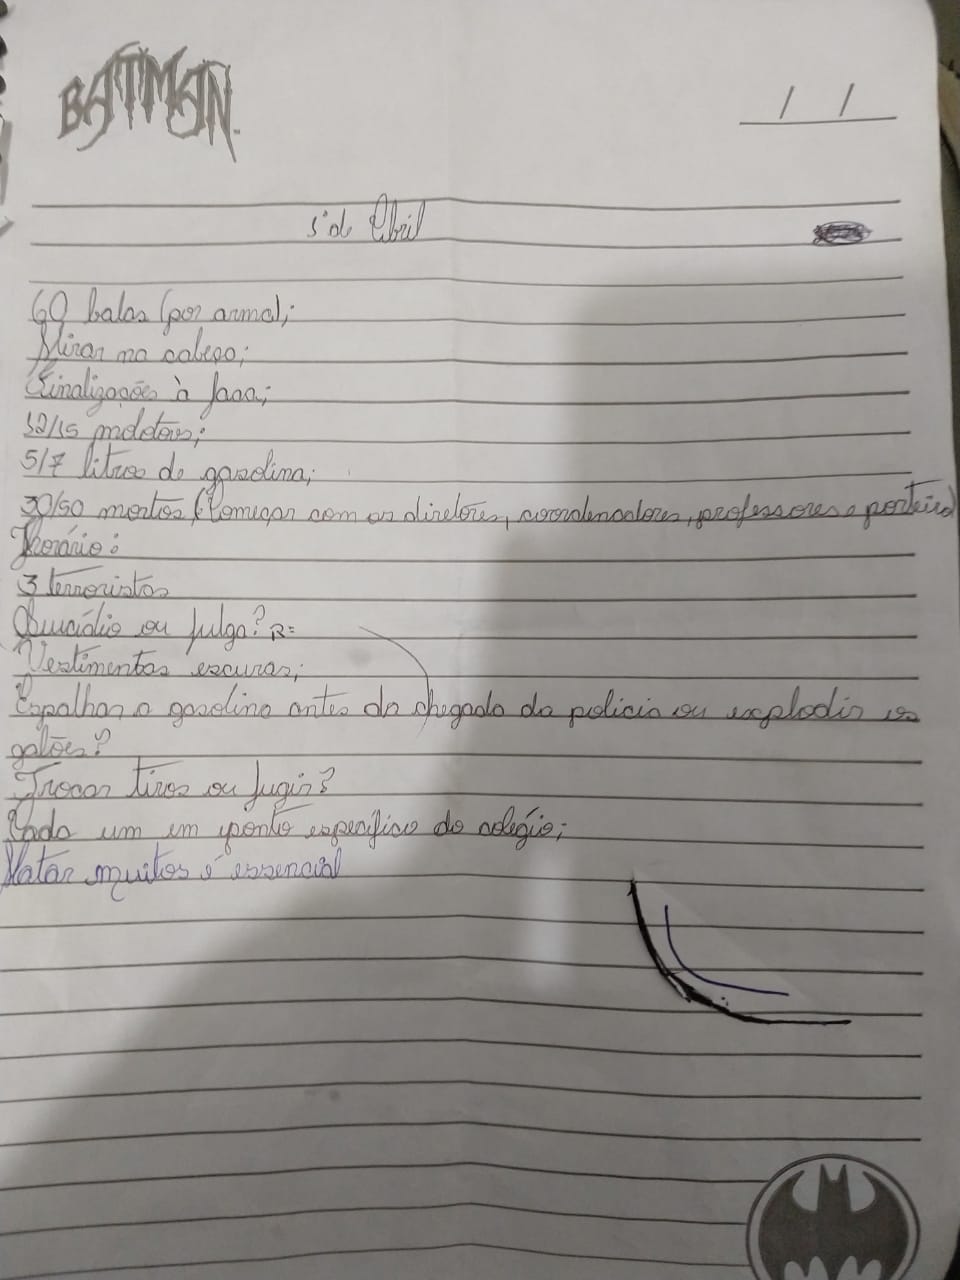 BATMAN
/ /
5 de Abril
60 balas (por arma);
Mirar na cabeça;
Finalizações à faca;
12/15 molotovs;
5/7 litros de gasolina;
30/50 mortos (Começar com os diretores, coordenadores, professores e porteiro)
Horário:
3 terroristas
Suicídio ou fulga? R=
Vestimentas escuras;
Espalhar a gasolina antes da chegada da polícia ou explodir os
galões?
Trocar tiros ou fugir?
Cada um em ponto específico do colégio;
Matar muitos é essencial